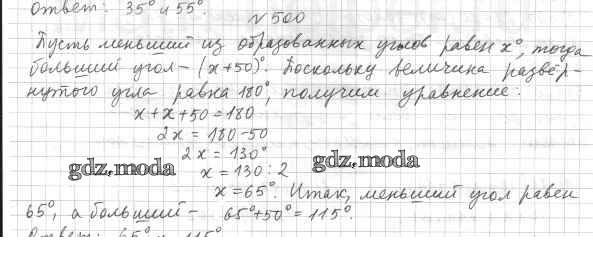 Ответ: 35° и 55°.
№ 500
Пусть меньший из образованных углов равен x°, тогда
больший угол – (x+50)°. Поскольку величина развёр-
нутого угла равна 180°, получим уравнение:
x + x + 50 = 180
2x = 180-50
2x = 130°
gdz.moda x = 130 : 2 gdz.moda
x = 65°. Итак, меньший угол равен
65°, а больший – 65°+50° = 115°.
Ответ: 65° и 115°.